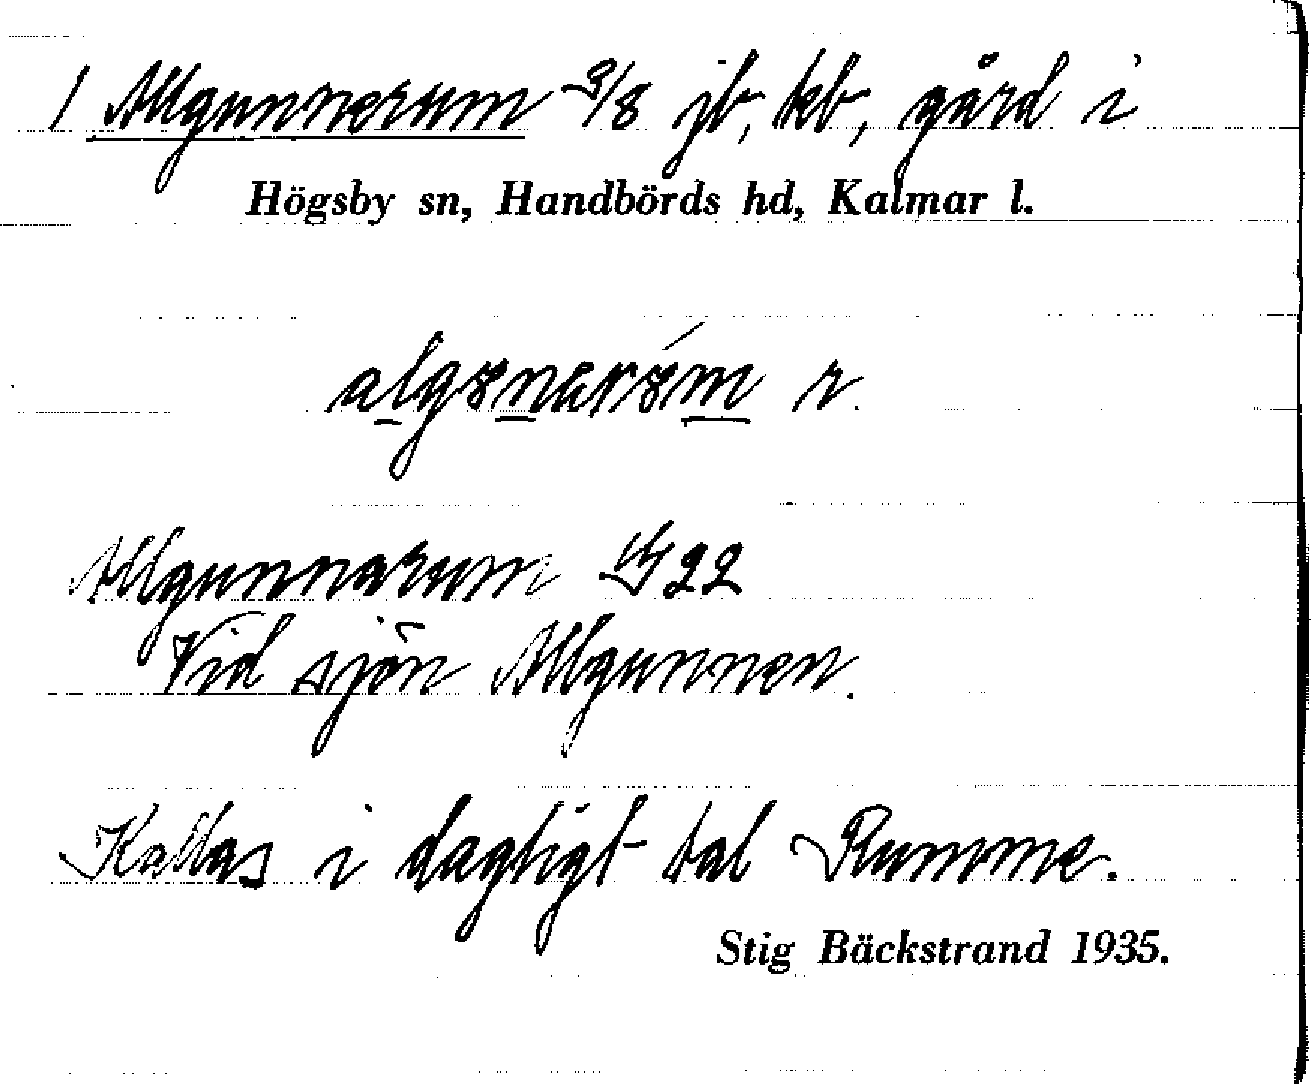 1 Allgunnerum 3/8 jb, kb, gård i
Högsby sn, Handbörds hd, Kalmar l.
r.
Allgunnarum 22
Vid sjön Allgunnen.
Kallas i dagligt tal Rumme.
Stig Bäckstrand 1935.